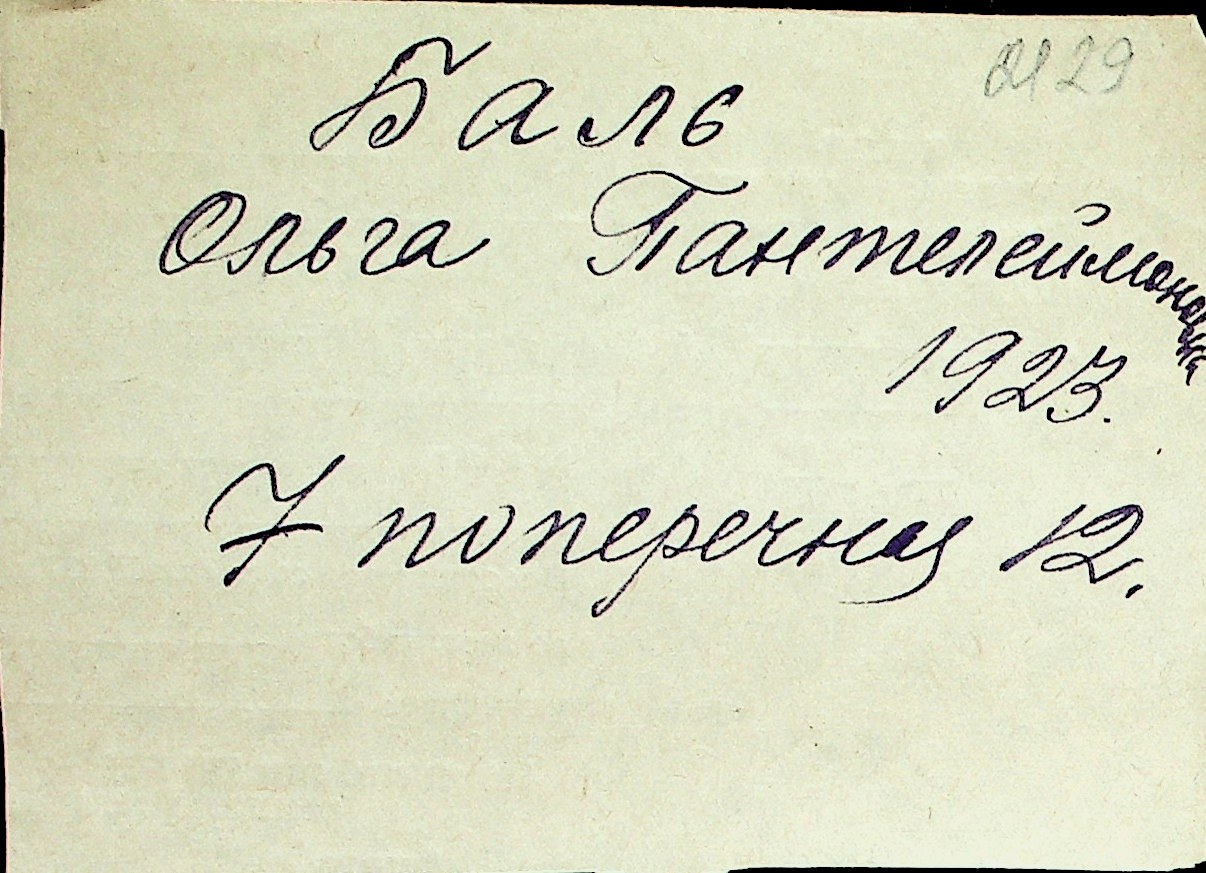 Баль
Ольга Пантелеймоновна
1923.
7 поперечная 12.